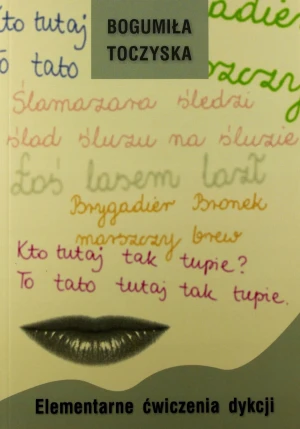 Kto tutaj
BOGUMIŁA
TOCZYSKA
To tato
marszczy
Ślamazara śledzi
ślad śluzu na śluzie
Łoś lasem lazł
Brygadier Bronek
marszczy brew
Kto tutaj tak tupie?
To tato tutaj tak tupie.
Elementarne ćwiczenia dykcji